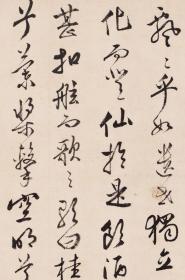 飄〻乎如遺世獨立
化而登仙於是飲酒
甚扣舷而歌之歌曰桂
兮蘭槳擊空明兮